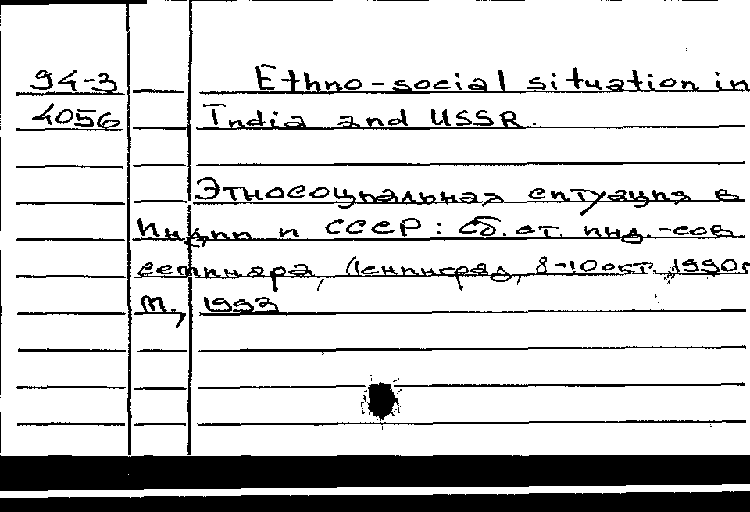 94-3 Ethno-social situation in
4056 India and USSR.
Этносоциальная ситуация в
Индии и СССР: Сб. ст. инд.-сов.
семинара, Ленинград, 8-10 окт. 1990г
М., 1993